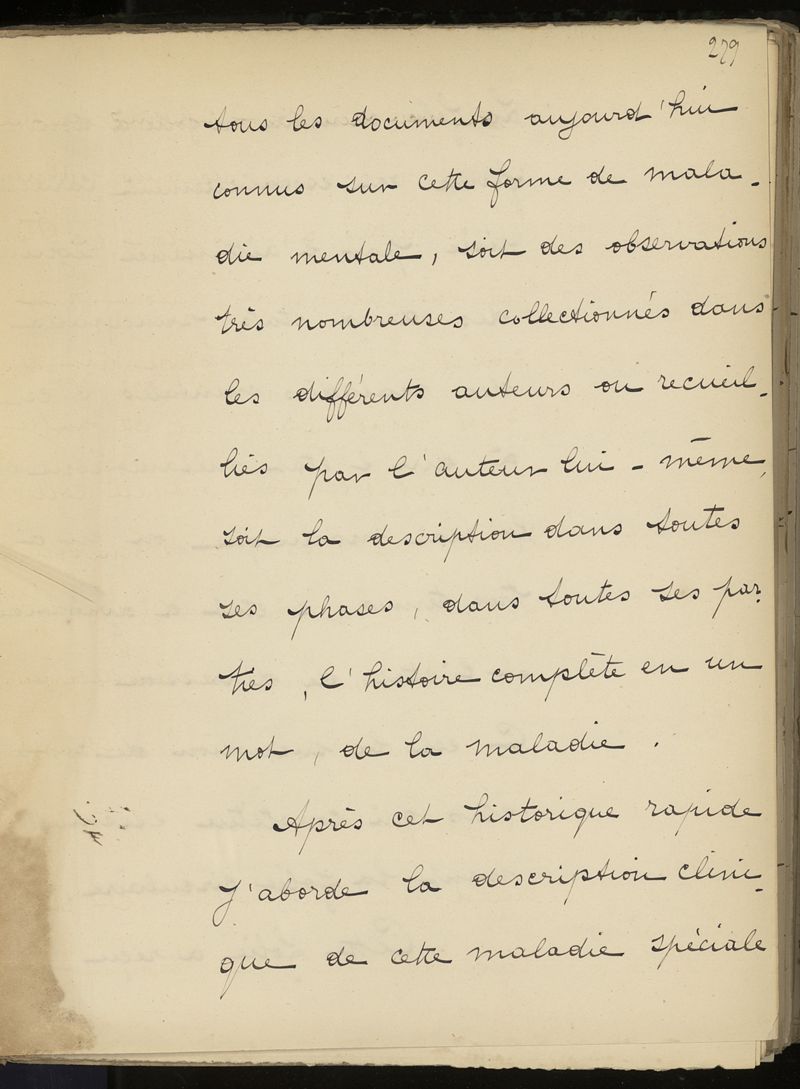 279
tous les documents aujourd'hui
connus sur cette forme de mala-
die mentale, soit des observations
très nombreuses collectionnés dans
les différents auteurs ou recueil-
liés par l'auteur lui-même,
soit la description dans toutes
ses phases, dans toutes ses par-
ties, l'histoire complète en un
mot, de la maladie.
Après cet historique rapide
j'aborde la description clini-
que de cette maladie spéciale